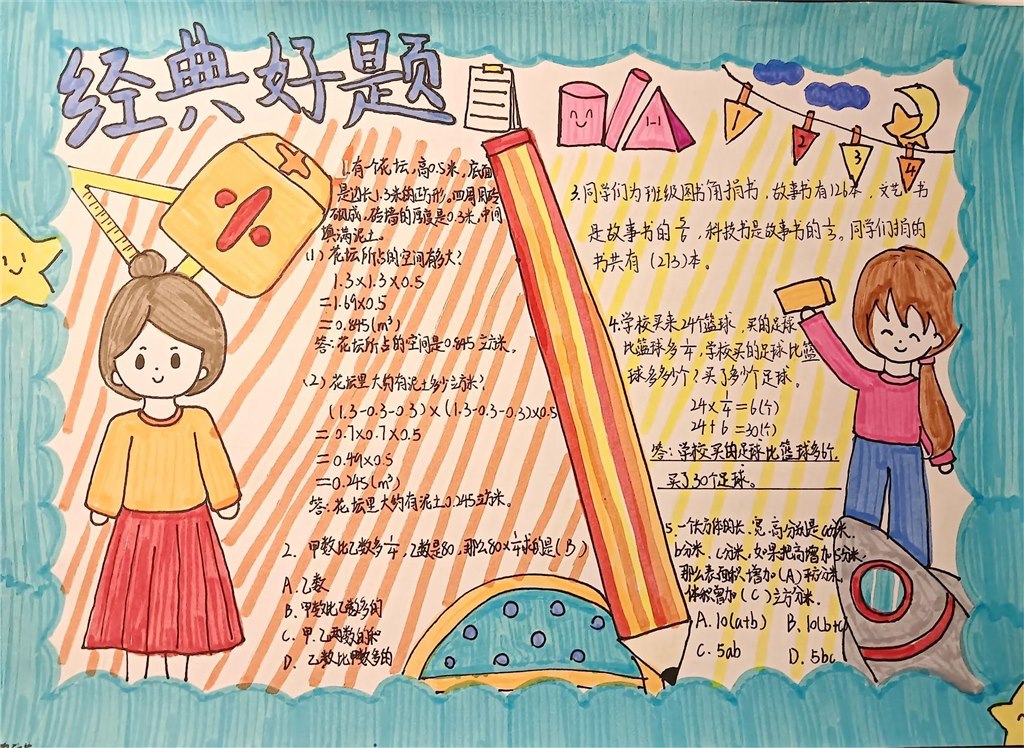 经典好题
1.有一个花坛,高0.5米,底面
是边长1.3米的正方形。四周用砖
砌成,砖墙的厚度是0.3米,中间
填满泥土。
(1)花坛所占的空间有多大?
1.3×1.3×0.5
=1.69×0.5
=0.845(m³)
答:花坛所占的空间是0.845立方米。
(2)花坛里大约有泥土多少立方米?
(1.3-0.3-0.3)×(1.3-0.3-0.3)×0.5
=0.7×0.7×0.5
=0.49×0.5
=0.245(m³)
答:花坛里大约有泥土0.245立方米。
2.甲数比乙数多1/4,乙数是80,那么80×1/4求的是(B)
A.乙数
B.甲数比乙数多的
C.甲、乙两数的和
D.乙数比甲数多的
1-1
1
2
3
4
3.同学们为班级图书角捐书,故事书有126本,文艺书
是故事书的5/6,科技书是故事书的1/3。同学们捐的
书共有(273)本。
4.学校买来24个篮球,买的足球
比篮球多1/4,学校买的足球比篮
球多多少个?买了多少个足球。
24×1/4=6(个)
24+6=30(个)
答:学校买的足球比篮球多6个,
买了30个足球。
5.一个长方体的长、宽、高分别是a分米、
b分米、c分米,如果把高增加5分米,
那么表面积增加(A)平方分米,
体积增加(C)立方分米。
A.10(a+b) B.10(b+c
C.5ab D.5bc